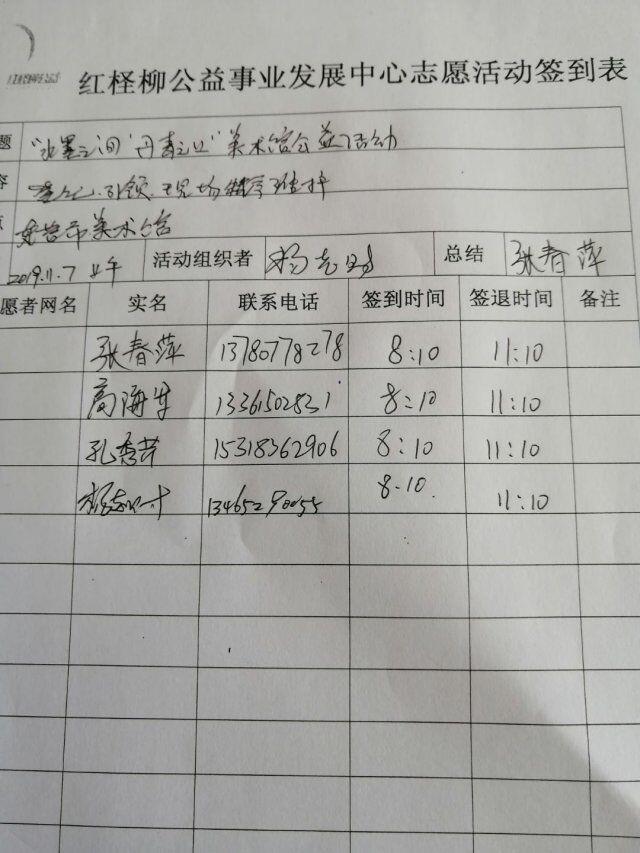 红柽柳公益事业发展中心志愿活动签到表
题 "水墨之间 丹青之上" 美术馆公益活动
容 引领、现场秩序维持
美术馆
2019.11.7 上午 活动组织者 杨志时 总结 张春萍
愿者网名 实名 联系电话 签到时间 签退时间 备注
张春萍 13780778278 8:10 11:10
高海 13361502831 8:10 11:10
孔秀芹 15318362906 8:10 11:10
杨志时 13465290055 8-10. 11:10